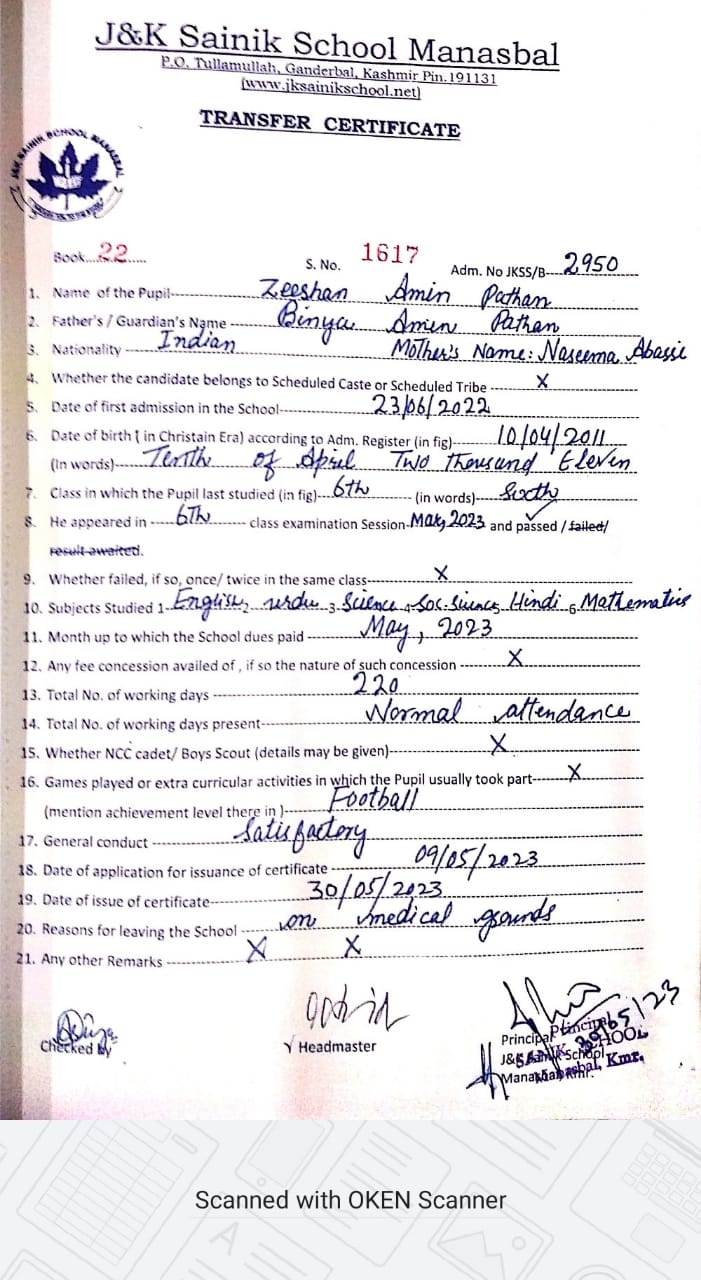 J&K Sainik School Manasbal
P.O. Tullamullah, Ganderbal, Kashmir Pin.191131
(www.jksainikschool.net)
TRANSFER CERTIFICATE
J&K SAINIK SCHOOL MANASBAL
Book....22.....
S. No. 1617
Adm. No JKSS/B----2950
1. Name of the Pupil---Zeeshan Amin Pathan
2. Father's / Guardian's Name ---Binya Amin Pathan
3. Nationality ---Indian Mother's Name: Naseema Abassi
4. Whether the candidate belongs to Scheduled Caste or Scheduled Tribe ---X
5. Date of first admission in the School---23/06/2022
6. Date of birth ( in Christain Era) according to Adm. Register (in fig)---10/04/2011
(In words)---Tenth of April Two Thousand Eleven
7. Class in which the Pupil last studied (in fig)---6th--- (in words)---Sixth
8. He appeared in ---6Th--- class examination Session-May, 2023 and passed / failed/
result awaited.
9. Whether failed, if so, once/ twice in the same class---X
10. Subjects Studied 1 English 2 urdu 3 Science 4 Soc. Sience 5 Hindi 6 Mathematics
11. Month up to which the School dues paid ---May, 2023
12. Any fee concession availed of , if so the nature of such concession ---X
13. Total No. of working days ---220
14. Total No. of working days present---Normal attendance
15. Whether NCC cadet/ Boys Scout (details may be given)---X
16. Games played or extra curricular activities in which the Pupil usually took part---X
(mention achievement level there in )---Football
17. General conduct ---Satisfactory
18. Date of application for issuance of certificate ---09/05/2023
19. Date of issue of certificate---30/05/2023
20. Reasons for leaving the School ---on medical grounds
21. Any other Remarks ---X X
Checked By
√ Headmaster
Principal
J&K Sainik School
Manasbal Kmr.
Principal
SAINIK SCHOOL
Manasbal, Kmr.
Scanned with OKEN Scanner